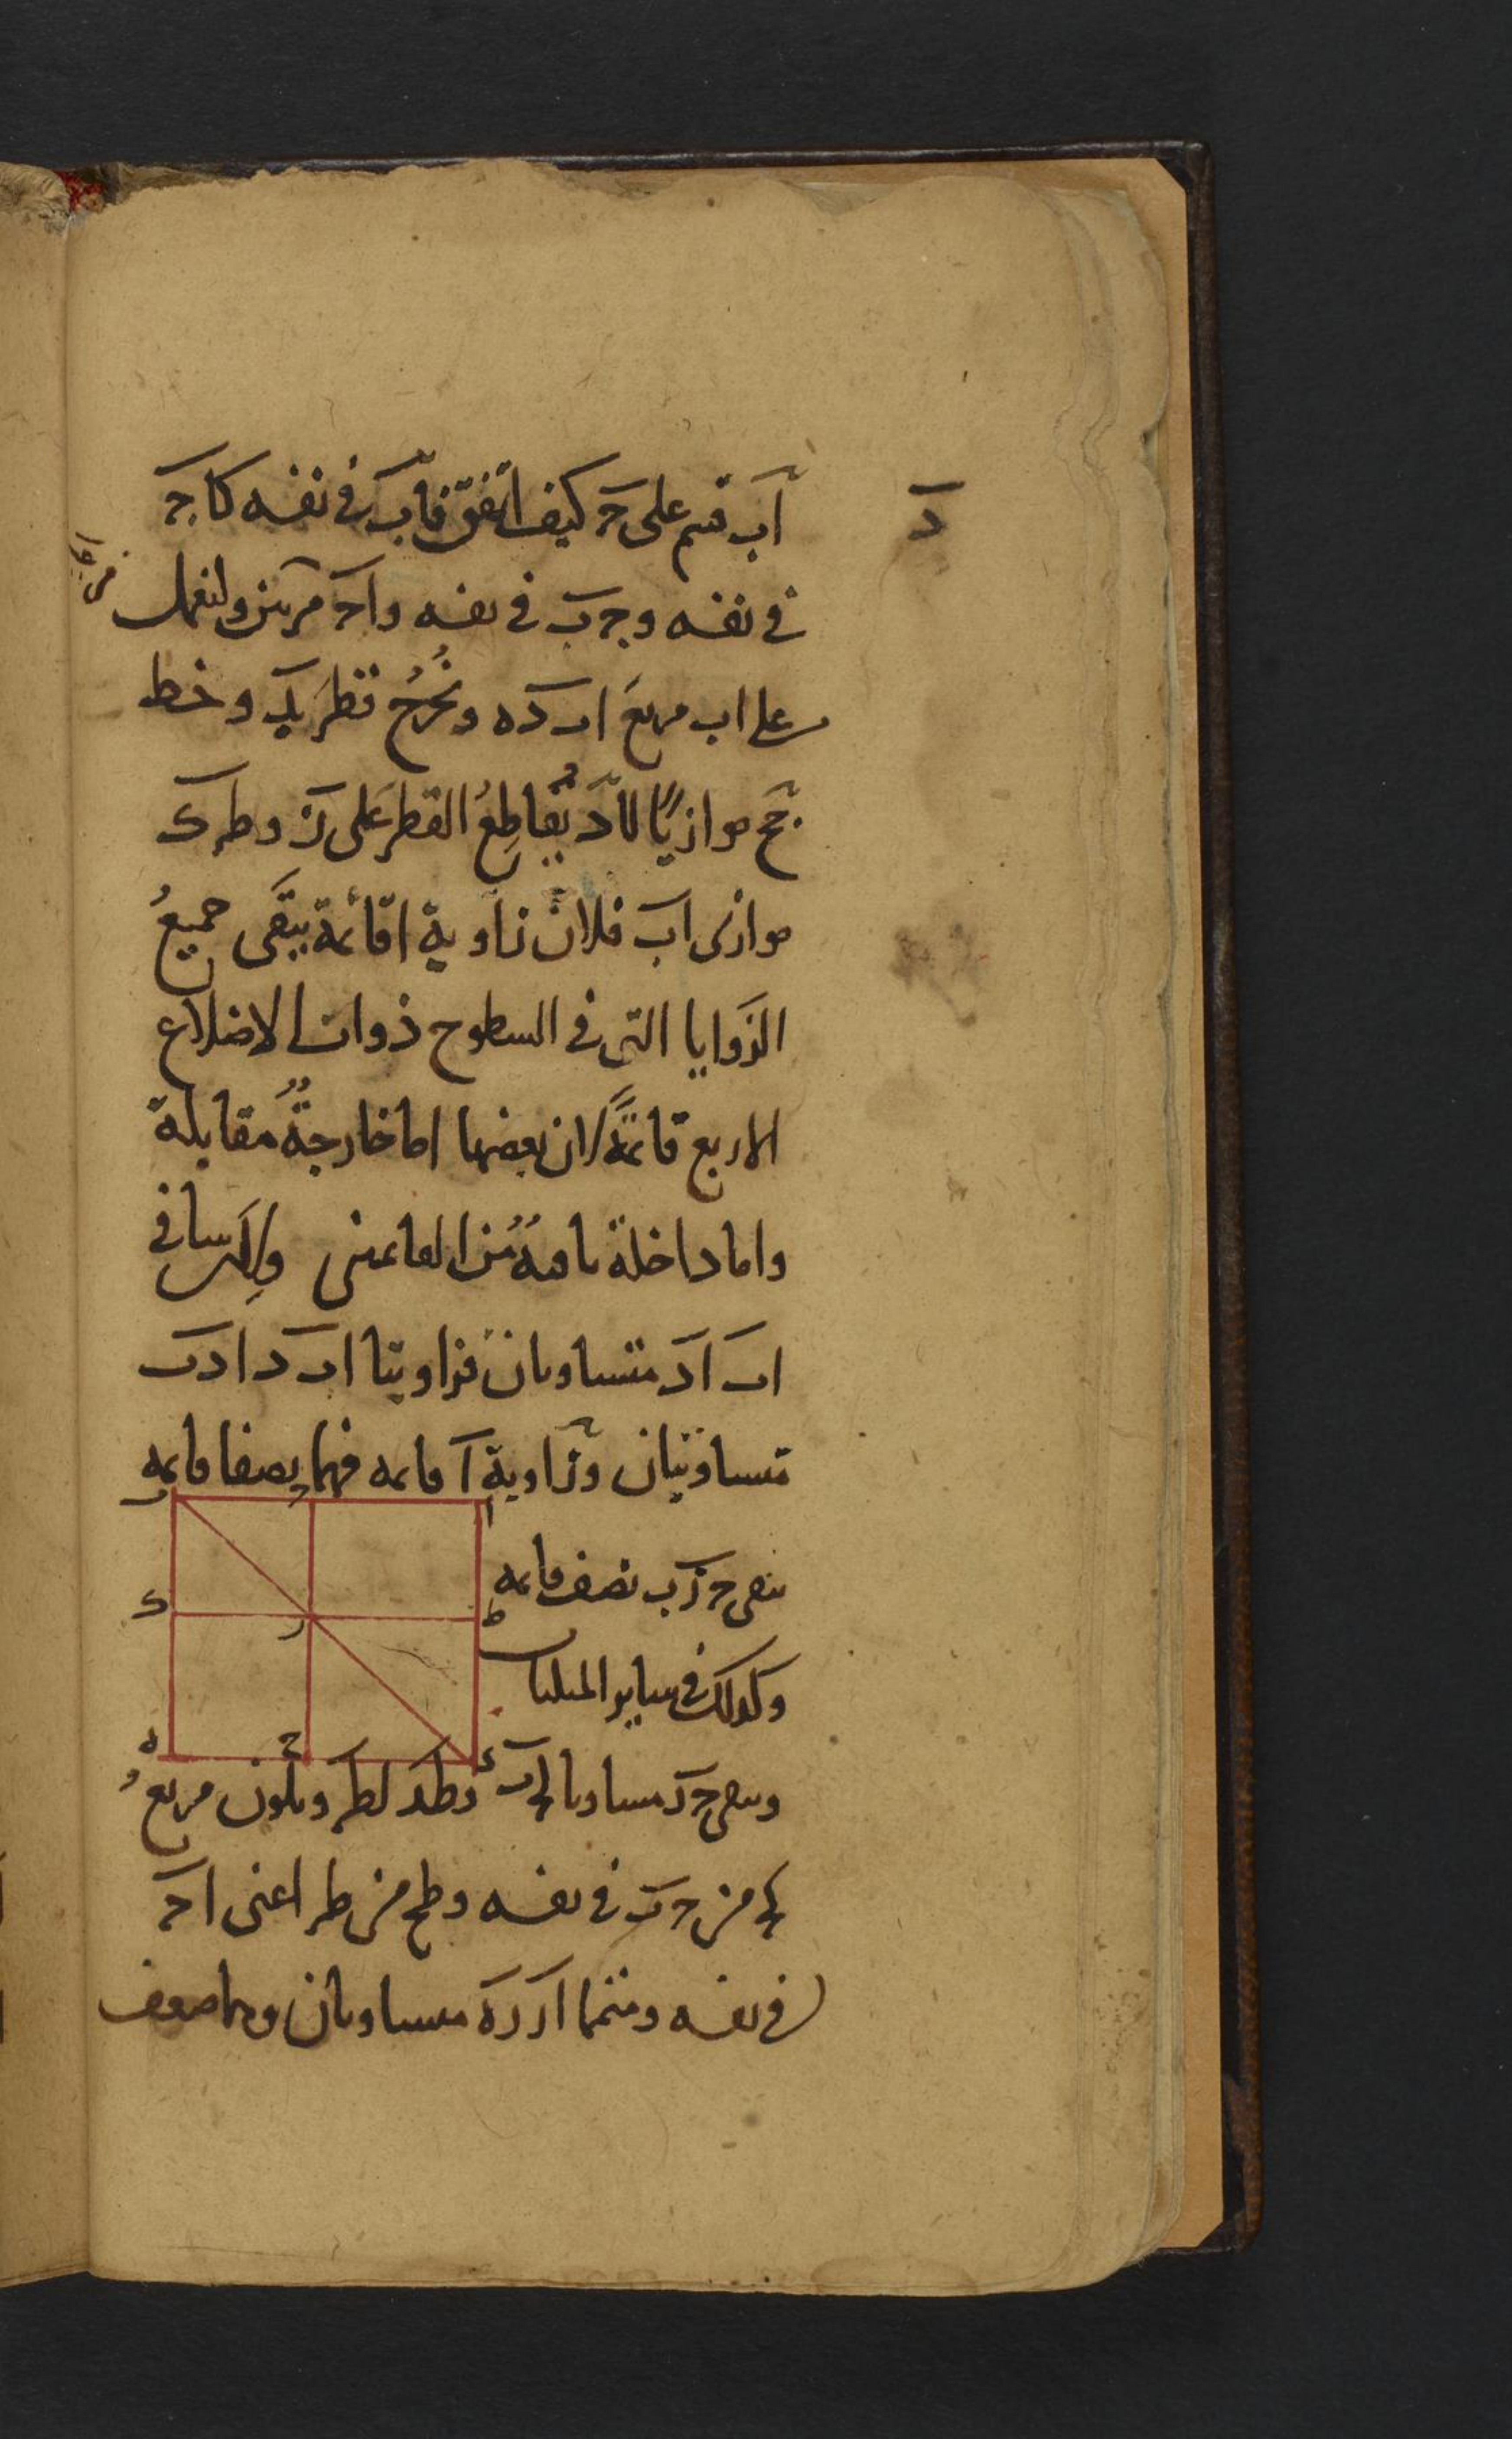 د
اب قسم على ج كيف اتفق فاب في نفسه كاج
في نفسه وجب في نفسه واج مرتين ولنعمل
على اب مربع اب ده ونخرج قطر بد وخط
جح موازيا لاد يقاطع القطر على ز وطرك
موازى اب فلان زاوية ا قائمة يبقى جميع
الزوايا التى في السطوح ذوات الاضلاع
الاربع قائمة لان بعضها اما خارجة مقابلة
واما داخلة من القائمتين ولان ساقى
اب اد متساويان فزاويتا اب د ادب
متساويتان وزاوية ا قائمه فهما نصفا قائمه
يبقى ج زب نصف قائمه
وكذلك في ساير المثلثات
ويبقى جر مساويا لجب وطد لطر ويكون مربع
ك من جب في نفسه وطح من طر اعنى اج
في نفسه ومتمما ار ره متساويان وهما ضعف
ا
ب
ج
ط
ك
ر
د
ح
ه